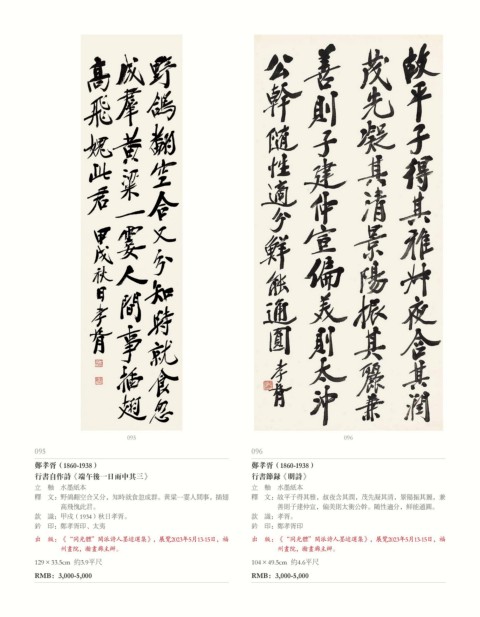 野鴿翻空合又分知時就食忽
成羣黃粱一霎人間事插翅
高飛媿此君
甲戌秋日孝胥
故平子得其雅叔夜含其潤
茂先凝其清景陽振其麗兼
善則子建仲宣偏美則太沖
公幹隨性適分鮮能通圓
孝胥
095
096
095
鄭孝胥（1860-1938）
行書自作詩《端午後一日雨中其三》
立　軸　水墨紙本
釋　文：野鴿翻空合又分，知時就食忽成群。黃粱一霎人間事，插翅
高飛愧此君。
款　識：甲戌（1934）秋日孝胥。
鈐　印：鄭孝胥印、太夷
出　版：《“同光體”閩派詩人墨迹選集》，展覽2023年5月13-15日，福
州畫院，瀚畫廊主辦。
129×33.5cm 約3.9平尺
RMB: 3,000-5,000
096
鄭孝胥（1860-1938）
行書節録《明詩》
立　軸　水墨紙本
釋　文：故平子得其雅，叔夜含其潤，茂先凝其清，景陽振其麗，兼
善則子建仲宣，偏美則太衝公幹。隨性適分，鮮能通圓。
款　識：孝胥。
鈐　印：鄭孝胥印
出　版：《“同光體”閩派詩人墨迹選集》，展覽2023年5月13-15日，福
州畫院，瀚畫廊主辦。
104×49.5cm 約4.6平尺
RMB: 3,000-5,000